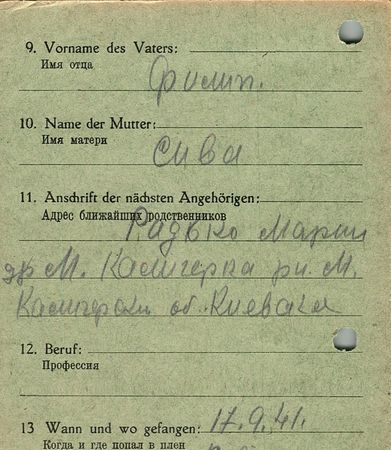 9. Vorname des Vaters:
Имя отца
Филип.
10. Name der Mutter:
Имя матери
Сива
11. Anschrift der nächsten Angehörigen:
Адрес ближайших родственников
Радько Марии
М. Калигерка рн. М.
Калигерски об. Киевская
12. Beruf:
Профессия
13 Wann und wo gefangen: 17.9.41.
Когда и где попал в плен